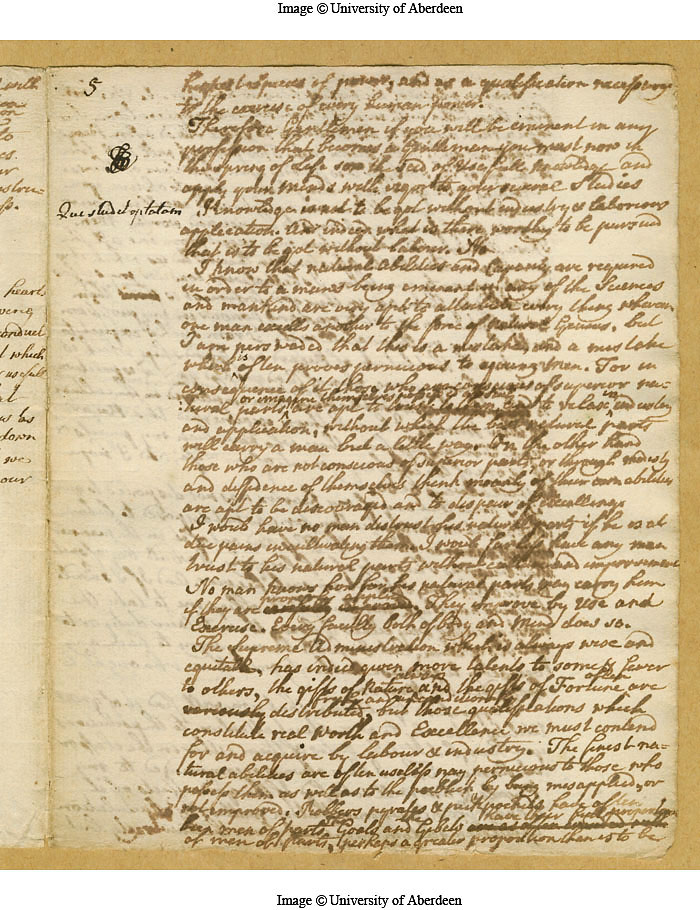 Image © University of Aberdeen
5
highest species of power, and as a qualification necessary
to the exercise of every human power.
Therefore Gentlemen if you will be eminent in any
profession that becomes a gentleman you must now in
the Spring of Life sow the Seed of Usefull Knowledge and
apply your minds with vigor to your several Studies
Qui studet optatam
Knowledge is not to be got without industry & laborious
application. And indeed what is there worthy to be pursued
that is to be got without labour. No
I know that natural abilities and Capacity are required
in order to a mans being eminent in any of the Sciences
and mankind are very apt to attribute every thing wherein
one man excells another to the force of natural Genius, but
I am perswaded that this is a mistake, and a mistake
which is often proves pernicious to young men. For in
consequence of it those who are conscious of superior na-
or imagine themselves
tural parts are apt to and to relax in industry
and application, without which the best natural parts
will carry a man but a little way. On the other hand
those who are not conscious of superior parts, or through modesty
and diffidence of themselves think meanly of their own abilities
are apt to be discouraged and to despair of excelling.
I would have no man distrust his natural parts if he is at
due pains in cultivating them. I would have any man
trust to his natural parts without and improvement
No man knows how far his natural parts may carry him
if they are They improve by Use and
Exercise. Every faculty both of body and Mind does so.
The Supreme Administration which is always wise and
equitable, has indeed given more talents to some & fewer
to others, the gifts of Nature and the gifts of Fortune are often
variously distributed, but those qualifications which
constitute real Worth and Excellence we must contend
for and acquire by labour & industry. The finest na-
tural abilities are often useless nay pernicious to those who
possess them as well as to the publick by being misapplied, or
not improved. Robbers pyrates & pickpockets have often
been men of parts. Goals and Gibets have
of men of parts, perhaps a greater proportion than is to be
hearts
conduct
which
usefull
down
we
our
Image © University of Aberdeen